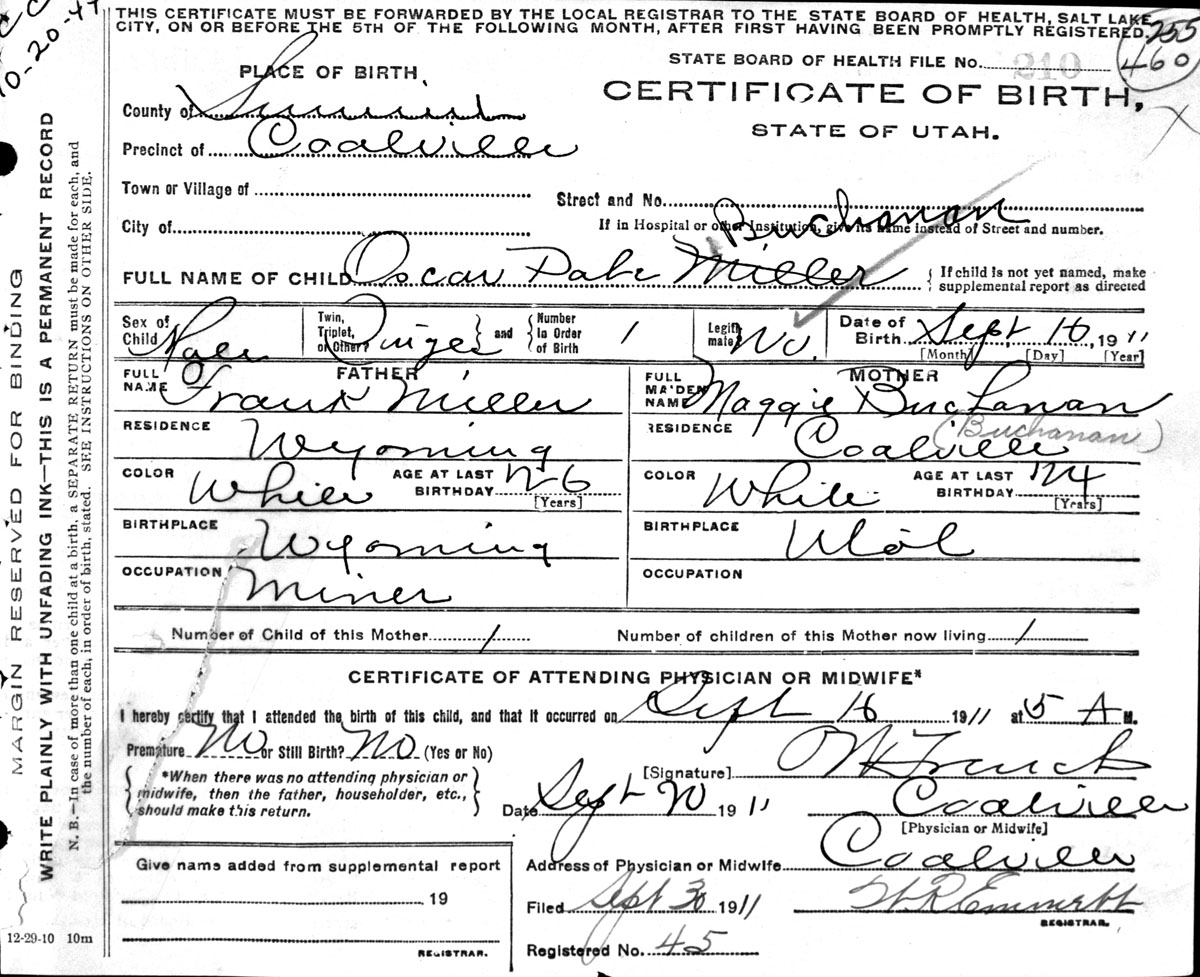 10-20-47
THIS CERTIFICATE MUST BE FORWARDED BY THE LOCAL REGISTRAR TO THE STATE BOARD OF HEALTH, SALT LAKE
CITY, ON OR BEFORE THE 5TH OF THE FOLLOWING MONTH, AFTER FIRST HAVING BEEN PROMPTLY REGISTERED.
255
460
STATE BOARD OF HEALTH FILE NO. 210
PLACE OF BIRTH,
CERTIFICATE OF BIRTH,
STATE OF UTAH.
County of Summit
Precinct of Coalville
Town or Village of
Street and No.
City of
If in Hospital or other Institution, give its name instead of Street and number.
Buchanan
FULL NAME OF CHILD Oscar Dale Miller
If child is not yet named, make
supplemental report as directed
Sex of Child Male
Twin, Triplet, or Other? Singel
and Number in Order of Birth 1
Legitimate? No.
Date of Birth Sept 16, 1911
[Month] [Day] [Year]
FATHER
FULL NAME Frank Miller
RESIDENCE Wyoming
COLOR White AGE AT LAST BIRTHDAY 26 [Years]
BIRTHPLACE Wyoming
OCCUPATION Miner
MOTHER
FULL MAIDEN NAME Maggie Buchanan
(Buchanan)
RESIDENCE Coalville
COLOR White AGE AT LAST BIRTHDAY 24 [Years]
BIRTHPLACE Utah
OCCUPATION
Number of Child of this Mother 1 Number of children of this Mother now living 1
CERTIFICATE OF ATTENDING PHYSICIAN OR MIDWIFE*
I hereby certify that I attended the birth of this child, and that it occurred on Sept 16 1911 at 5 A M.
Premature No or Still Birth? No (Yes or No)
*When there was no attending physician or
midwife, then the father, householder, etc.,
should make this return.
[Signature]
Date Sept 20 1911 Coalville
[Physician or Midwife]
Address of Physician or Midwife Coalville
Give name added from supplemental report
19
REGISTRAR.
Filed Sept 30 1911 W.R. Emmett
REGISTRAR.
Registered No. 45
12-29-10 10m
MARGIN RESERVED FOR BINDING
WRITE PLAINLY WITH UNFADING INK—THIS IS A PERMANENT RECORD
N. B.—In case of more than one child at a birth, a SEPARATE RETURN must be made for each, and
the number of each, in order of birth, stated. SEE INSTRUCTIONS ON OTHER SIDE.